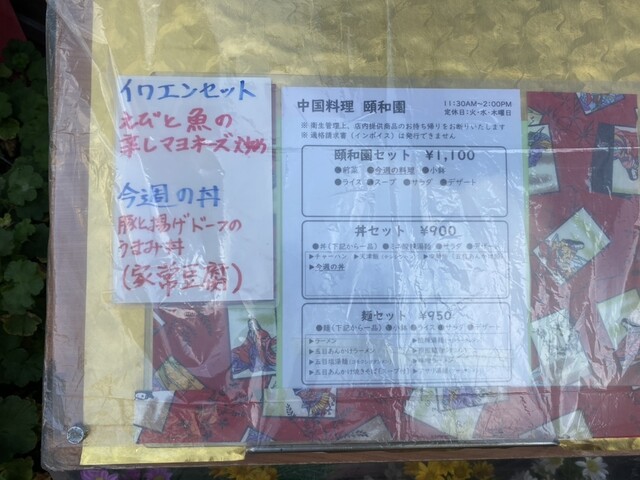 イワエンセット
えびと魚の
蒸しマヨネーズ炒め
今週の丼
豚と揚げドーフの
うまみ丼
(家常豆腐)
中国料理 頤和園
11:30AM～2:00PM
定休日:火・水・木曜日
※ 衛生管理上、店内提供商品のお持ち帰りをお断りいたします
※ 適格請求書（インボイス）は発行できません
頤和園セット ￥1,100
●前菜 ●今週の料理 ●小鉢
●ライス ●スープ ●サラダ ●デザート
丼セット ￥900
●丼（下記から一品） ●サラダ ●デザート
▶チャーハン ▶天津飯
▶今週の丼
麺セット ￥950
●麺（下記から一品） ●小鉢 ●ライス ●サラダ ●デザート
▶ラーメン
▶五目あんかけラーメン
▶五目塩湯麺
▶五目あんかけ焼きそば（スープ付）